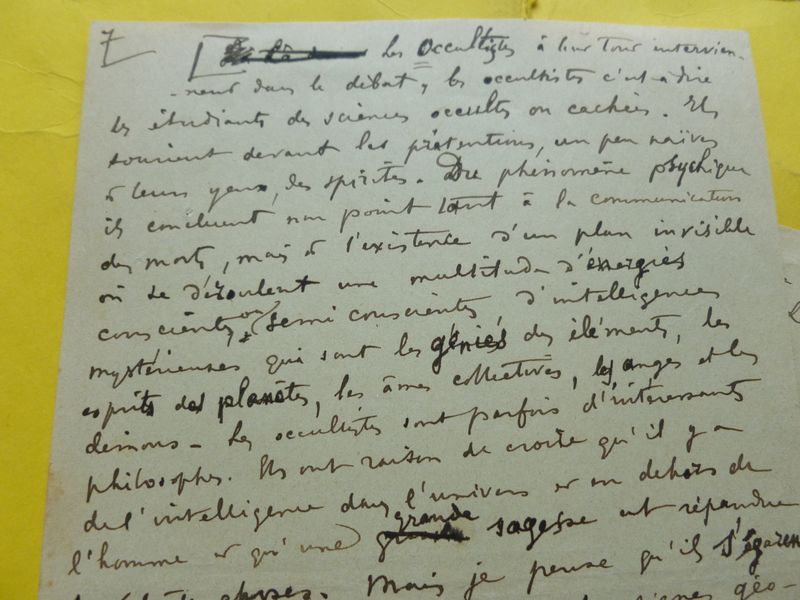 7
les Occultistes à leur tour intervien-
-nent dans le débat, les occultistes c'est à dire
les étudiants des sciences occultes ou cachées. Ils
sourient devant les prétentions, un peu naïves
à leurs yeux, des spirites. Du phénomène psychique
ils concluent non point tant à la communication
des morts, mais à l'existence d'un plan invisible
où se déroulent une multitude d'énergies
conscientes ou semi conscientes, d'intelligences
mystérieuses qui sont les génies des éléments, les
esprits des planètes, les âmes collectives, les anges et les
démons – Les occultistes sont parfois d'intéressants
philosophes. Ils ont raison de croire qu'il y a
de l'intelligence dans l'univers et en dehors de
l'homme et qu'une grande sagesse est répandue
choses. Mais je pense qu'ils s'égarent
géo-